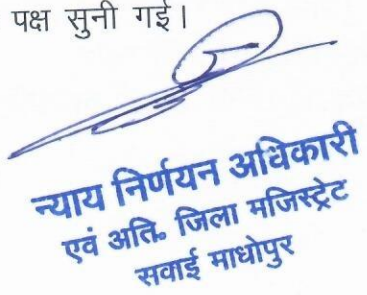 पक्ष सुनी गई।
न्याय निर्णयन अधिकारी
एवं अति. जिला मजिस्ट्रेट
सवाई माधोपुर